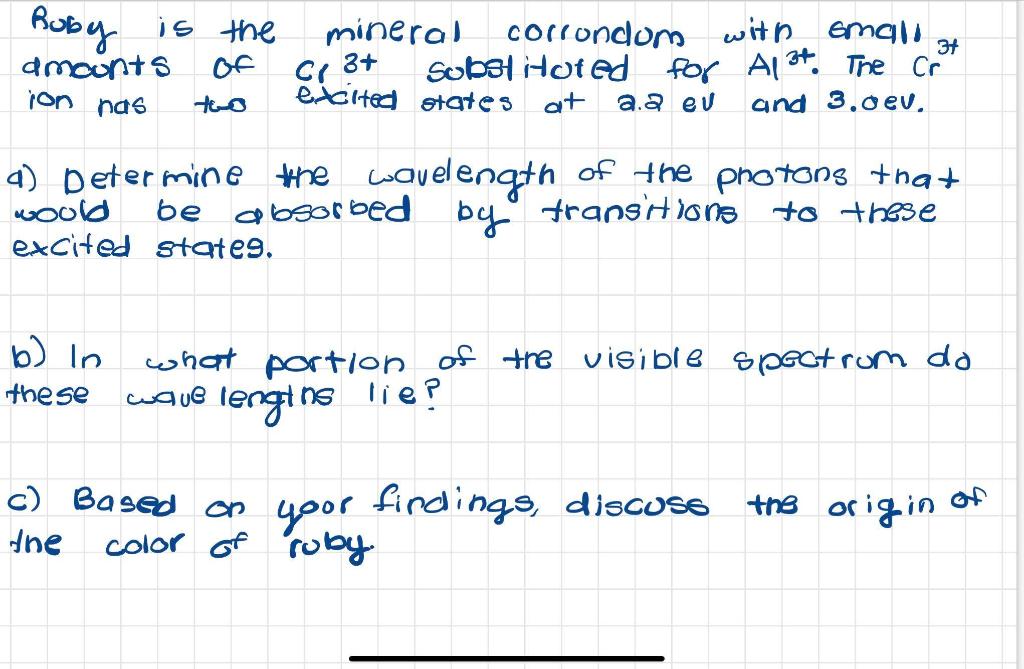 Ruby is the mineral corrundum with small
amounts of Cr 3+ substituted for Al 3+. The Cr 3+
ion has two excited states at 2.2 eV and 3.0 eV.
a) Determine the wavelength of the photons that
would be absorbed by transitions to these
excited states.
b) In what portion of the visible spectrum do
these wavelengths lie?
c) Based on your findings, discuss the origin of
the color of ruby.